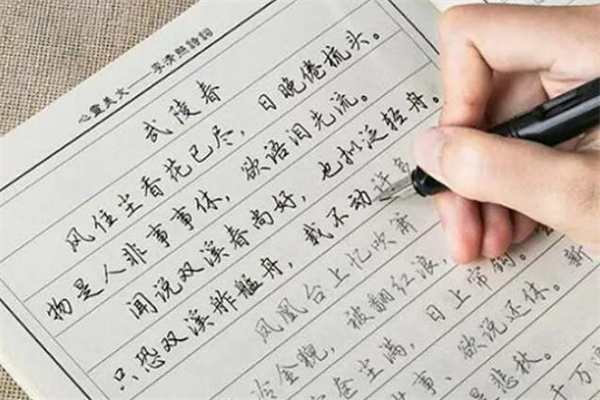 心靈美文——李清照詩詞
武陵春
风住尘香花已尽，日晚倦梳头。
物是人非事事休，欲语泪先流。
闻说双溪春尚好，也拟泛轻舟。
只恐双溪舴艋舟，载不动许多
凤凰台上忆吹箫
冷金猊，被翻红浪，
奁尘满，日上帘钩。
事、欲说还休。新
是悲秋。
千万